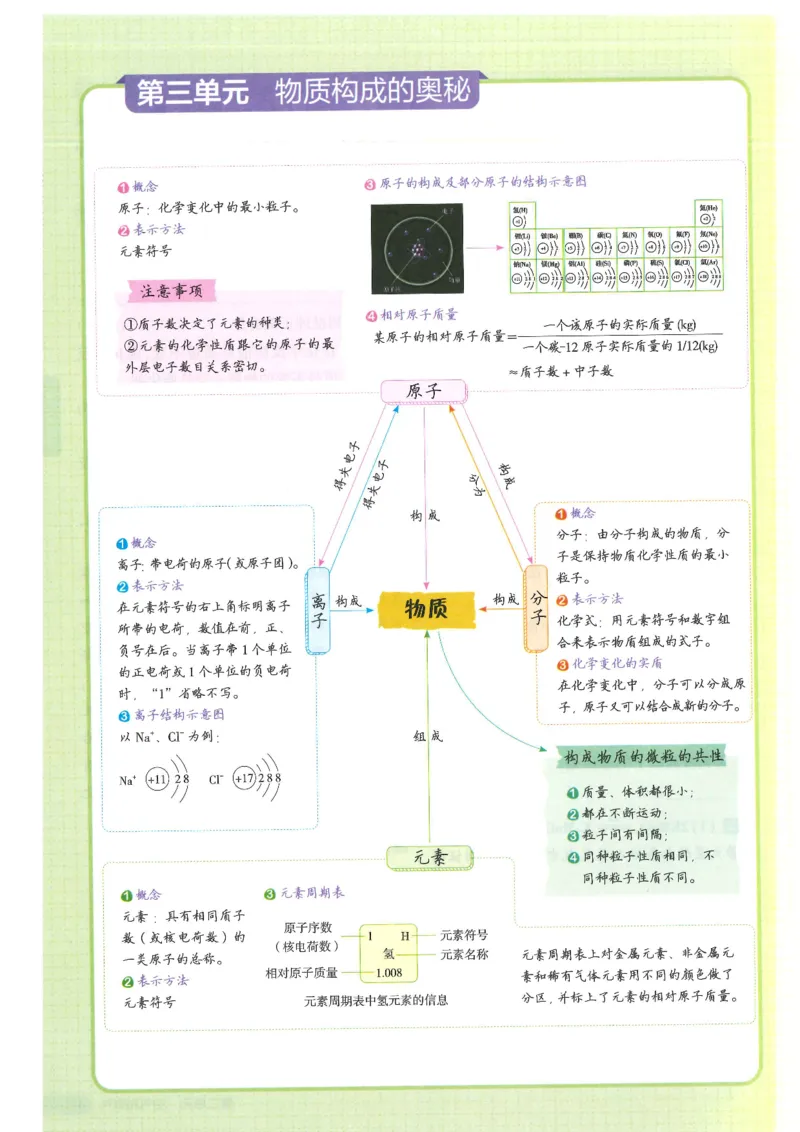 第三单元 物质构成的奥秘
❶概念
原子：化学变化中的最小粒子。
❷表示方法
元素符号
注意事项
①质子数决定了元素的种类；
②元素的化学性质跟它的原子的最
外层电子数目关系密切。
❸原子的构成及部分原子的结构示意图
电子
原子核
氢(H)
氦(He)
锂(Li) 铍(Be) 硼(B) 碳(C) 氮(N) 氧(O) 氟(F) 氖(Ne)
钠(Na) 镁(Mg) 铝(Al) 硅(Si) 磷(P) 硫(S) 氯(Cl) 氩(Ar)
❹相对原子质量
某原子的相对原子质量=
一个该原子的实际质量(kg)
一个碳-12原子实际质量的1/12(kg)
≈质子数+中子数
原子
得失电子
得失电子
构成
分为
构成
❶概念
离子：带电荷的原子(或原子团)。
❷表示方法
在元素符号的右上角标明离子
所带的电荷，数值在前，正、
负号在后。当离子带1个单位
的正电荷或1个单位的负电荷
时，“1”省略不写。
❸离子结构示意图
以Na⁺、Cl⁻为例：
Na⁺ +11 2 8 Cl⁻ +17 2 8 8
离子
构成
物质
构成
分子
❶概念
分子：由分子构成的物质，分
子是保持物质化学性质的最小
粒子。
❷表示方法
化学式：用元素符号和数字组
合来表示物质组成的式子。
❸化学变化的实质
在化学变化中，分子可以分成原
子，原子又可以结合成新的分子。
组成
构成物质的微粒的共性
❶质量、体积都很小；
❷都在不断运动；
❸粒子间有间隔；
❹同种粒子性质相同，不
同种粒子性质不同。
元素
❶概念
元素：具有相同质子
数（或核电荷数）的
一类原子的总称。
❷表示方法
元素符号
❸元素周期表
原子序数
（核电荷数）
相对原子质量
1 H
氢
1.008
元素符号
元素名称
元素周期表中氢元素的信息
元素周期表上对金属元素、非金属元
素和稀有气体元素用不同的颜色做了
分区，并标上了元素的相对原子质量。